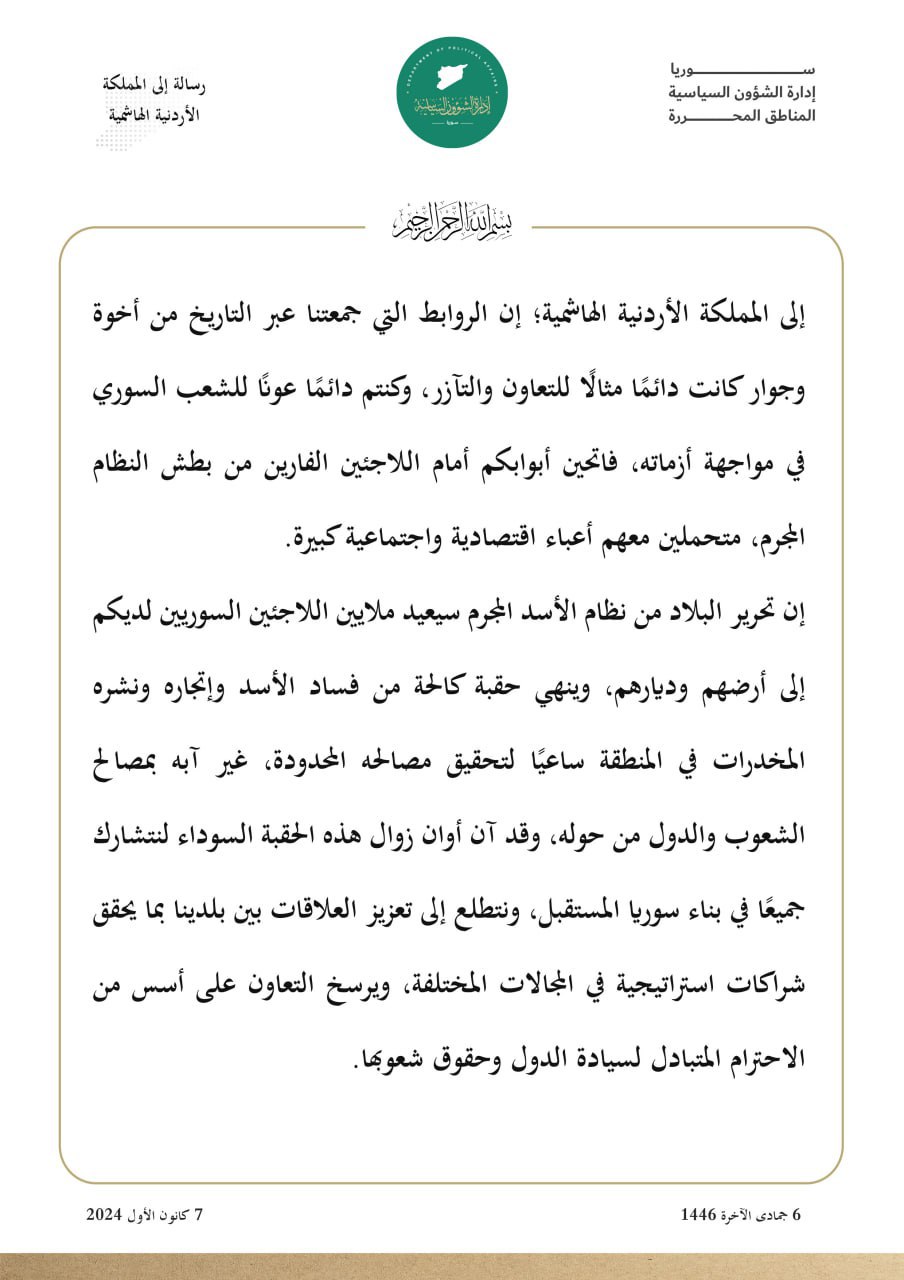 ســـــــــــــوريا
إدارة الشؤون السياسية
المناطق المحـــــــررة
DEPARTMENT OF POLITICAL AFFAIRS
إدارة الشؤون السياسية
سوريا
رسالة إلى المملكة
الأردنية الهاشمية
بسم الله الرحمن الرحيم
إلى المملكة الأردنية الهاشمية؛ إن الروابط التي جمعتنا عبر التاريخ من أخوة
وجوار كانت دائمًا مثالًا للتعاون والتآزر، وكنتم دائمًا عونًا للشعب السوري
في مواجهة أزماته، فاتحين أبوابكم أمام اللاجئين الفارين من بطش النظام
المجرم، متحملين معهم أعباء اقتصادية واجتماعية كبيرة.
إن تحرير البلاد من نظام الأسد المجرم سيعيد ملايين اللاجئين السوريين لديكم
إلى أرضهم وديارهم، وينهي حقبة كالحة من فساد الأسد وإتجاره ونشره
المخدرات في المنطقة ساعيًا لتحقيق مصالحه المحدودة، غير آبه بمصالح
الشعوب والدول من حوله، وقد آن أوان زوال هذه الحقبة السوداء لنتشارك
جميعًا في بناء سوريا المستقبل، ونتطلع إلى تعزيز العلاقات بين بلدينا بما يحقق
شراكات استراتيجية في المجالات المختلفة، ويرسخ التعاون على أسس من
الاحترام المتبادل لسيادة الدول وحقوق شعوبها.
6 جمادى الآخرة 1446
7 كانون الأول 2024